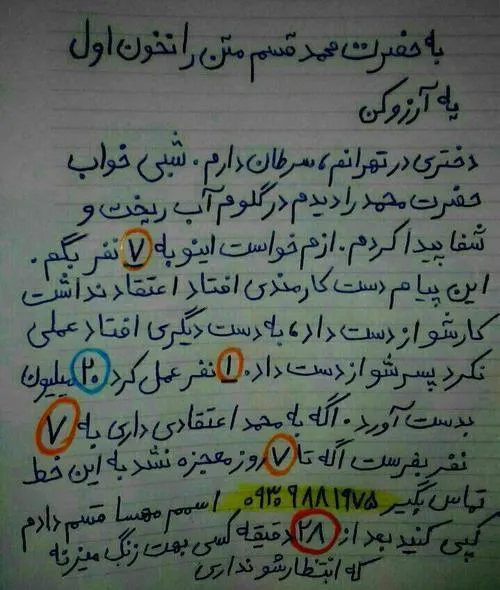 به حضرت محمد قسم متن را نخون اول
یه آرزو کن
دختری در تهرانم، سرطان دارم. شبی خواب
حضرت محمد را دیدم در گلوم آب ریخت و
شفا پیدا کردم. ازم خواست اینو به ۷ نفر بگم.
این پیام دست کارمندی افتاد اعتقاد نداشت
کارشو از دست داد، به دست دیگری افتاد عملی
نکرد پسرشو از دست داد. ۱ نفر عمل کرد ۲۰ میلیون
بدست آورد. اگه به محمد اعتقادی داری به ۷
نفر بفرست اگه تا ۷ روز معجزه نشد به این خط
تماس بگیر ۰۹۳۰۶۸۸۱۹۷۵ اسمم مهسا قسم دادم
کپی کنید بعد از ۲۸ دقیقه کسی بهت زنگ میزنه
که انتظارشو نداری